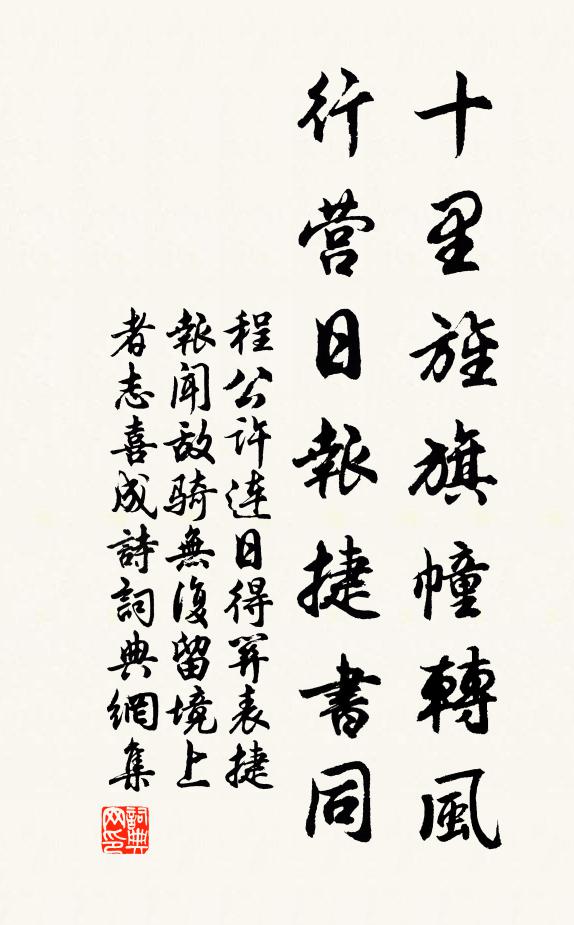 十里旌旗幢轉風
行营日報捷書同
程公許連日得關表捷
報聞敌骑無復留境上
者志喜成詩詞典網集
詞典网印